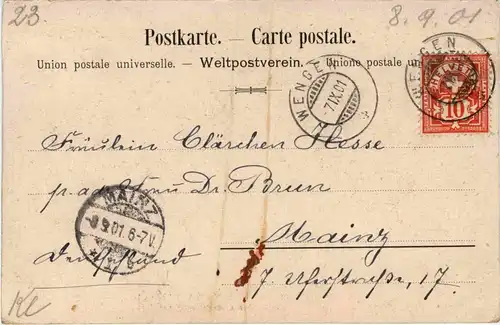 23.
8. 9. 01
Postkarte. — Carte postale.
Union postale universelle. — Weltpostverein. — Unione postale
WENGEN
-7.IX.01
WENGEN
HELVETIA
10
Fräulein Clärchen Hesse
p. adr. Frau Dr. Brun
MAINZ
8 9.01.6-7V.
Mainz
Deutschland
J. Uferstraße, 17.